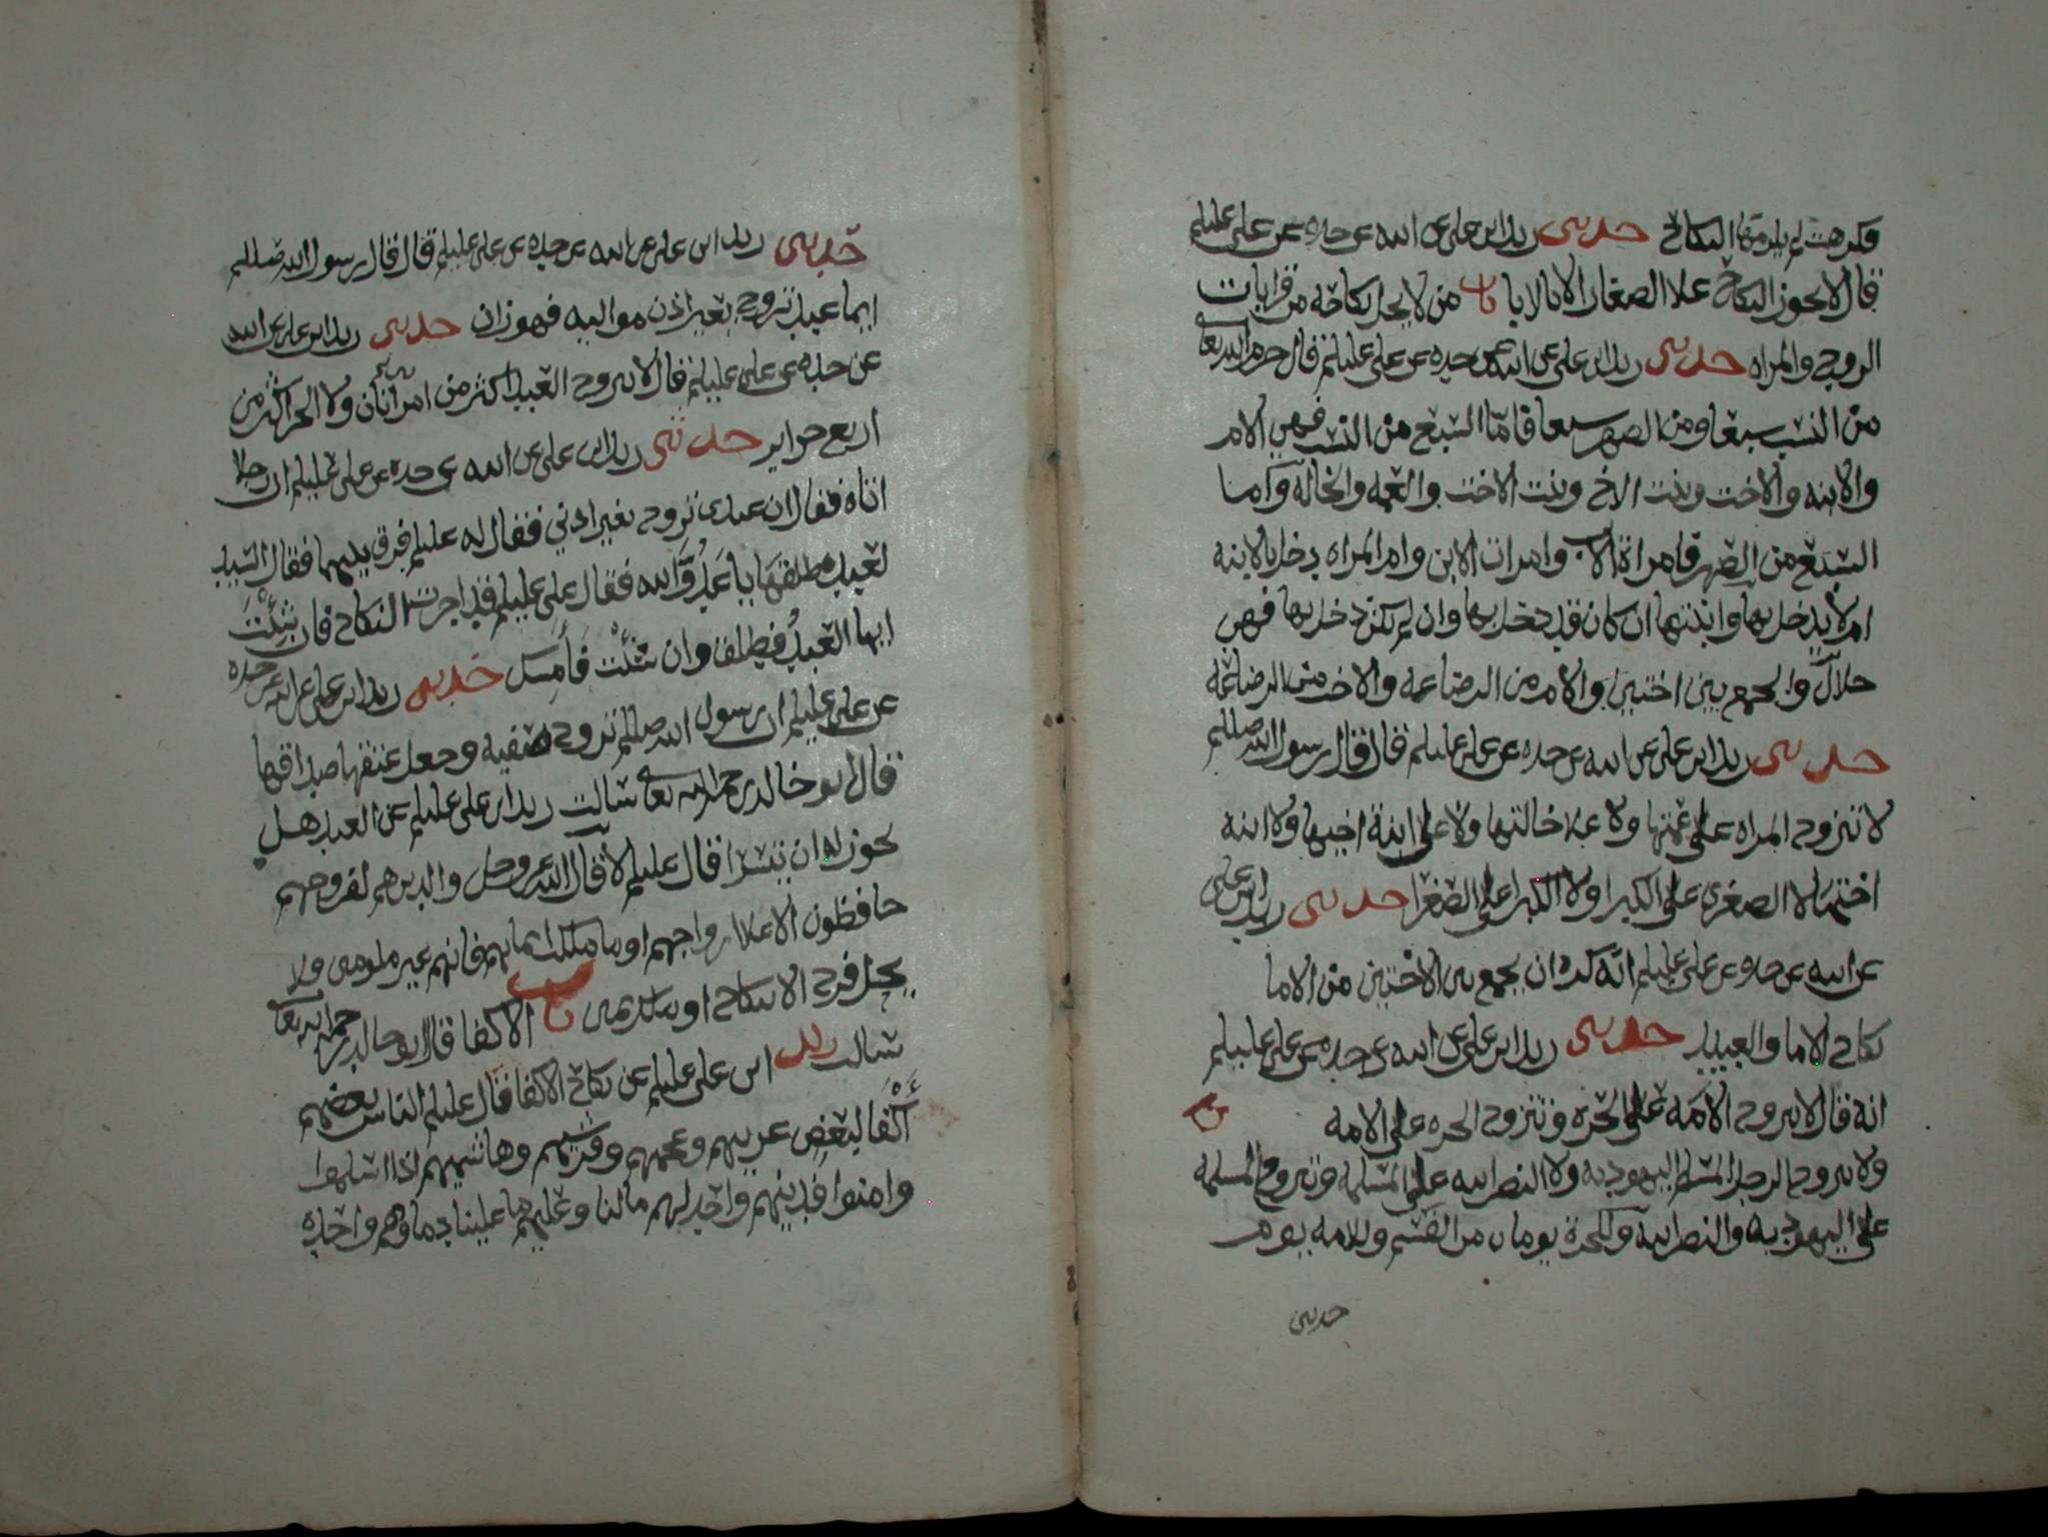 فكرهت لم يلزمها النكاح حدثني زيد ابن علي عن ابيه عن جده عن علي عليلم
قال لا يجوز النكاح علا الصغار الا بالابا باب من لا يحل نكاحه من قرابات
الزوج والمراه حدثني زيد ابن علي عن ابيه عن جده عن علي عليلم قال حرم الله تعا
من النسب سبعا ومن الصهر سبعا فامّا السبع من النسب فهي الام
والابنه والاخت وبنت الاخ وبنت الاخت والعمه والخاله واما
السبع من الصهر فامراة الاب وامرات الابن وام المراه دخل بالابنه
ام لا يدخل بها وابنتها ان كان قد دخل بها وان لم يكن دخل بها فهي
حلال والجمع بين اختين والام من الرضاعه والاخت من الرضاعه
حدثني زيد ابن علي عن ابيه عن جده عن علي عليلم قال قال رسول الله صللم
لا تتزوج المراه على عمتها ولا علا خالتها ولا على ابنة اخيها ولا ابنه
اختها لا الصغرى على الكبرا ولا الكبرا على الصغرا حدثني زيد ابن علي
عن ابيه عن جده عن علي عليلم انّه كره ان يجمع بين الاختين من الاما
نكاح الاما والعبيد حدثني زيد ابن علي عن ابيه عن جده عن علي عليلم
انه قال لا تزوج الامه على الحره وتتزوج الحره على الامه
ولا يتزوج الرجل المسلم اليهوديه ولا النصرانيه على المسلمه وتتزوج المسلمه
على اليهوديه والنصرانيه وللحرة يومان من القسم وللامه يوم
حدثني
حدثني زيد ابن علي عن ابيه عن جده عن علي عليلم قال قال رسول الله صللم
ايما عبد تزوج بغير اذن مواليه فهو زان حدثني زيد ابن علي عن ابيه
عن جده عن علي عليلم قال لا يتزوج العبد اكثر من امرأتان ولا الحر اكثر من
اربع حراير حدثني زيد ابن علي عن ابيه عن جده عن علي عليلم ان رجلا
اتاه فقال ان عبدي تزوج بغير اذني فقال له عليلم فرق بينهما فقال السيد
لعبده طلقها يا عدوَّ الله فقال علي عليلم قد اجزت النكاح فان شئت
ايها العبدُ فطلق وان شئت فأمسك حدثني زيد ابن علي عن ابيه عن جده
عن علي عليلم ان رسول الله صللم تزوج صفيه وجعل عتقها صداقها
قال ابو خالد رحمه الله تعا سالت زيد ابن علي عليلم عن العبد هل
يجوز له ان يتسرا قال عليلم لا قال الله عز وجل والذين هم لفروجهم
حافظون الا علا ازواجهم او ما ملكت ايمانهم فانهم غير ملومين ولا
يحل فرج الا بنكاح او ملك يمين باب الاكفا قال ابو خالد رحمه الله تعا
سالت زيد ابن علي عليلم عن نكاح الاكفا فقال عليلم الناس بعضهم
أكفا لبعض عربيهم وعجميهم وقرشيهم وهاشميهم اذا اسلموا
وامنوا فدينهم واحد لهم ما لنا وعليهم ما علينا دماوهم واحده